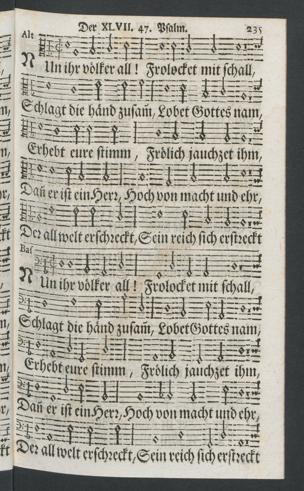 Der XLVII. 47. Psalm. 235
Alt
NUn ihr völker all! Frolocket mit schall,
Schlagt die händ zusam̃, Lobet Gottes nam,
Erhebt eure stimm, Frölich jauchzet ihm,
Dañ er ist ein Herr, Hoch von macht und ehr,
Der all welt erschreckt, Sein reich sich erstreckt
Bas
NUn ihr völker all! Frolocket mit schall,
Schlagt die händ zusam̃, Lobet Gottes nam,
Erhebt eure stimm, Frölich jauchzet ihm,
Dañ er ist ein Herr, Hoch von macht und ehr,
Der all welt erschreckt, Sein reich sich erstreckt